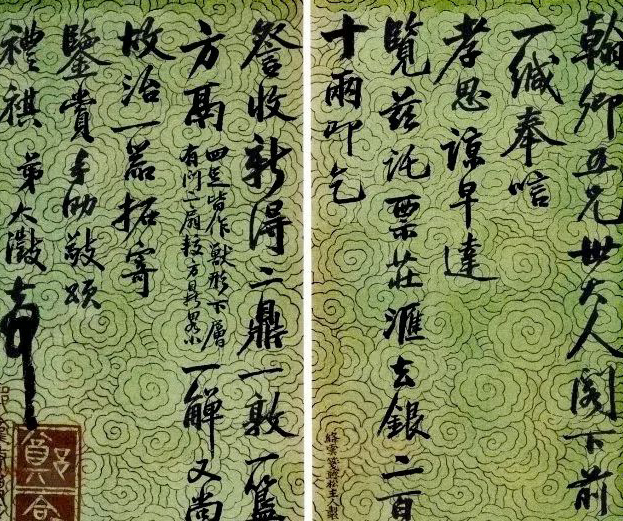 翰卿五兄世大人閣下前
一緘奉唁
孝思諒早達
覽茲託票莊滙去銀二百
十兩叩乞
詧收新得二鼎一敦一簠
方鬲四足皆作獸形下層
有門一扇較方鼎畧小一觶又尚
一器拓寄
鑒賞手泐敬頌
禮祺弟大澂頓首
鄭盦